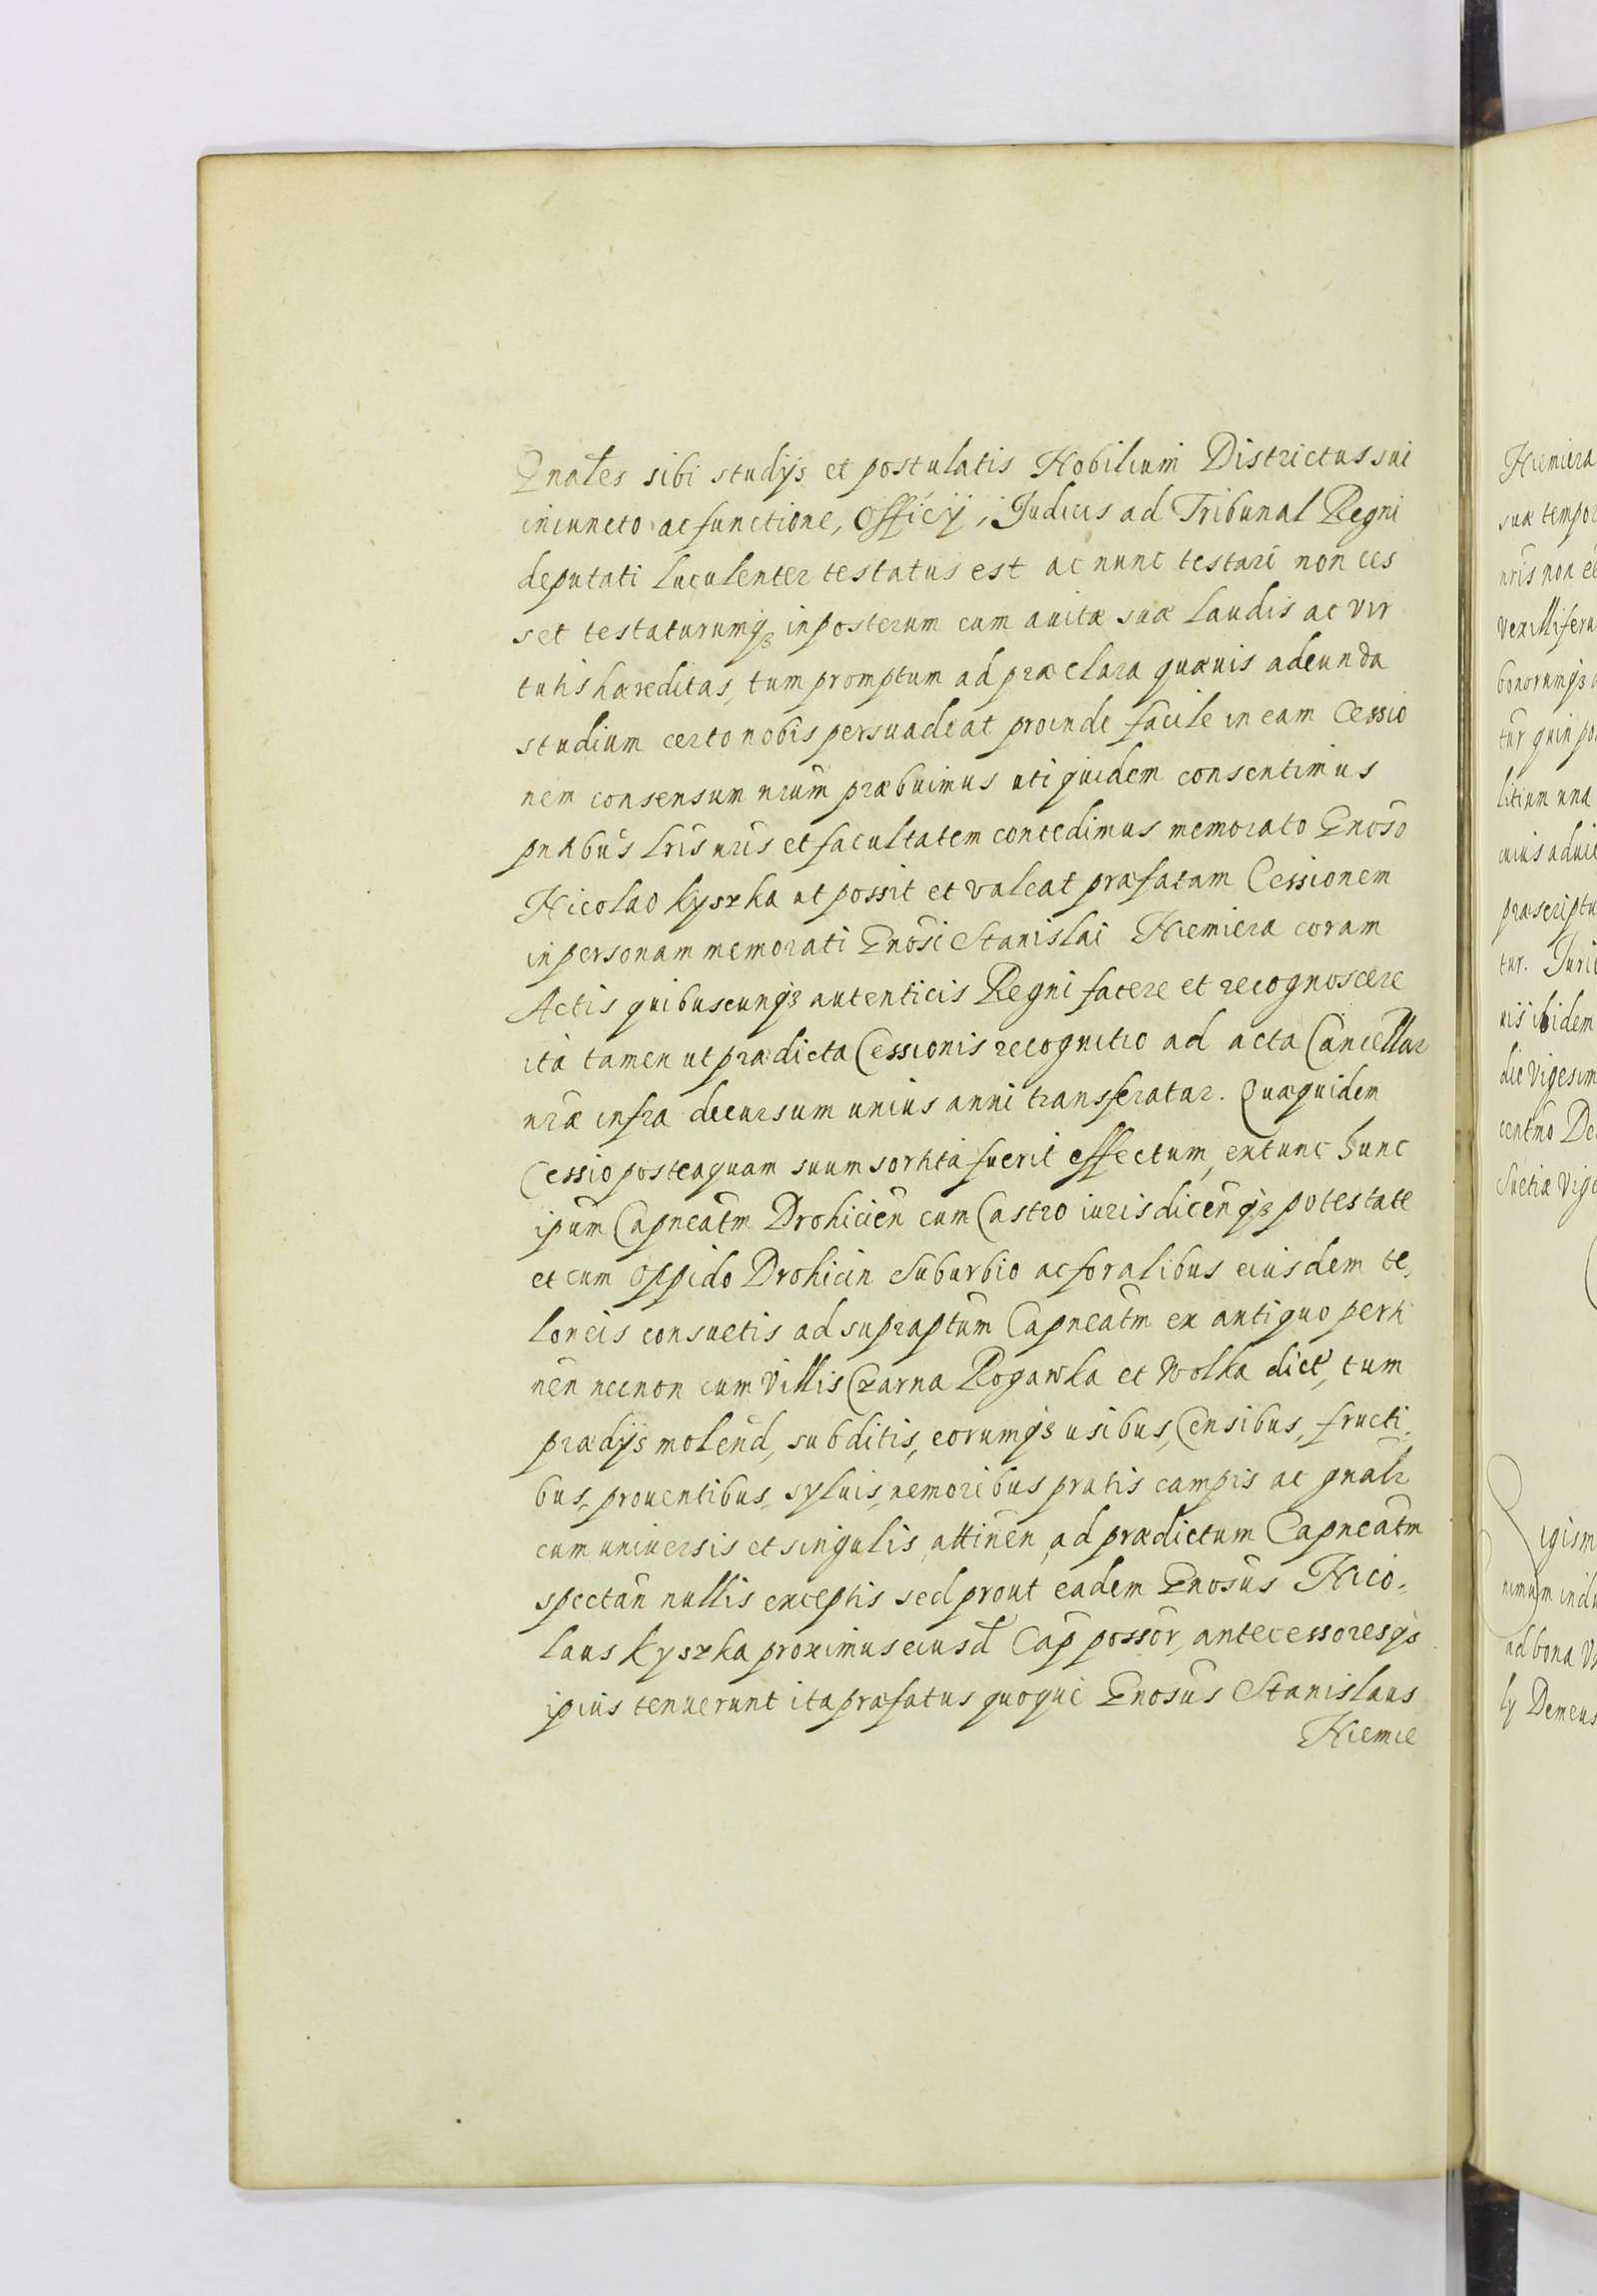 Gnales sibi studijs et postulatis Nobilium Districtus sui
iniuncto ac functione, Officij, Judicis ad Tribunal Regni
deputati luculenter testatus est ac nunc testari non ces
set testaturumq₃ inposterum cum auitæ suæ laudis ac vir
tutis hæreditas, tum promptum ad præclara quæuis adeunda
studium certo nobis persuadeat proinde facile in eam Cessio
nem consensum nrum præbuimus uti quidem consentimus
pntibus lris nris et facultatem concedimus memorato Gnoso
Nicolao Kyszka ut possit et valeat præfatam Cessionem
in personam memorati Gnosi Stanislai Niemiera coram
Actis quibuscunq₃ autenticis Regni facere et recognoscere
ita tamen ut prædicta Cessionis recognitio ad acta Cancellar
nræ infra decursum unius anni transferatur. Quæquidem
Cessio posteaquam suum sortita fuerit effectum, extunc hunc
ipum Capneatm Drohicien cum Castro iurisdicenq₃ potestate
et cum Oppido Drohicin Suburbio ac foralibus eiusdem te,
loneis consuetis ad supraptum Capneatm ex antiquo perti
nen necnon cum Villis Czarna Rogawka et Wolka dict, tum
prædijs molend, subditis, eorumq₃ usibus, Censibus, fructi,
bus, prouentibus, syluis, nemoribus pratis campis ac gnalr
cum uniuersis et singulis, attinen, ad prædictum Capneatm
spectan nullis exceptis sed prout eadem Gnosus Nico,
laus Kyszka proximus eiusd Cap possor, antecessoresq₃
ipius tenuerunt ita præfatus quoque Gnosus Stanislaus
Niemie
Niemiera
suæ tempor
nris non
vexilliferu
bonorumq₃
tur quin po
litium una
cuius adui
præscriptu
tur. Juri
nij ibidem
die Vigesim
centmo De
Suetiæ Vige
igism
nimum inclu
ad bona
ly Demeus